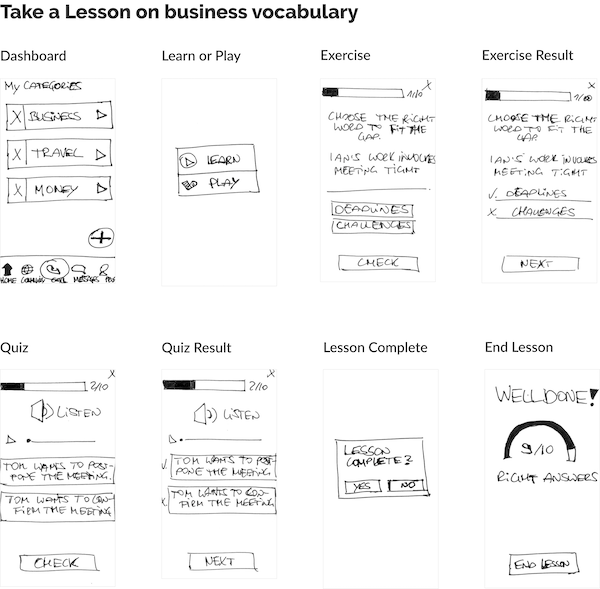 Take a Lesson on business vocabulary
Dashboard
MY CATEGORIES
X BUSINESS
X TRAVEL
X MONEY
+
HOME
Learn or Play
LEARN
PLAY
Exercise
X
1/10
CHOOSE THE RIGHT
WORD TO FIT THE
GAP.
IAN'S WORK INVOLVES
MEETING TIGHT
DEADLINES
CHALLENGES
CHECK
Exercise Result
X
1/10
CHOOSE THE RIGHT
WORD TO FIT THE
GAP.
IAN'S WORK INVOLVES
MEETING TIGHT
√. DEADLINES
X CHALLENGES
NEXT
Quiz
X
2/10
LISTEN
TOM WANTS TO POST-
PONE THE MEETING.
TOM WANTS TO CON-
FIRM THE MEETING
CHECK
Quiz Result
X
2/10
LISTEN
√ TOM WANTS TO POST-
PONE THE MEETING.
X TOM WANTS TO CON-
FIRM THE MEETING
NEXT
Lesson Complete
LESSON
COMPLETE?
YES NO
End Lesson
WELL DONE!
9/10
RIGHT ANSWERS
END LESSON